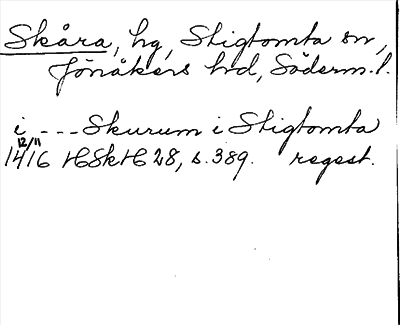 Skåra, hg, Stigtomta sn,
Jönåkers hd, Söderm. l.
i --- Skurum i Stigtomta
12/11
1416 HSkH 28, s. 389. regest.